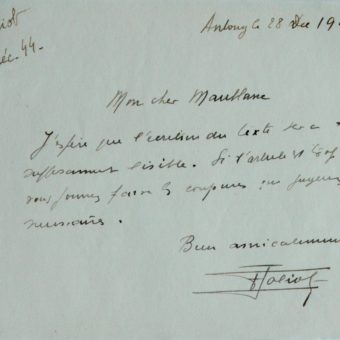 Joliot
déc. 44.
Antony le 28 Dec 19
Mon cher Maublanc
J'espère que l'écriture du texte sera
suffisamment lisible. Si l'article est trop
vous pouvez faire les coupures que jugerez
nécessaires.
Bien amicalement
F Joliot